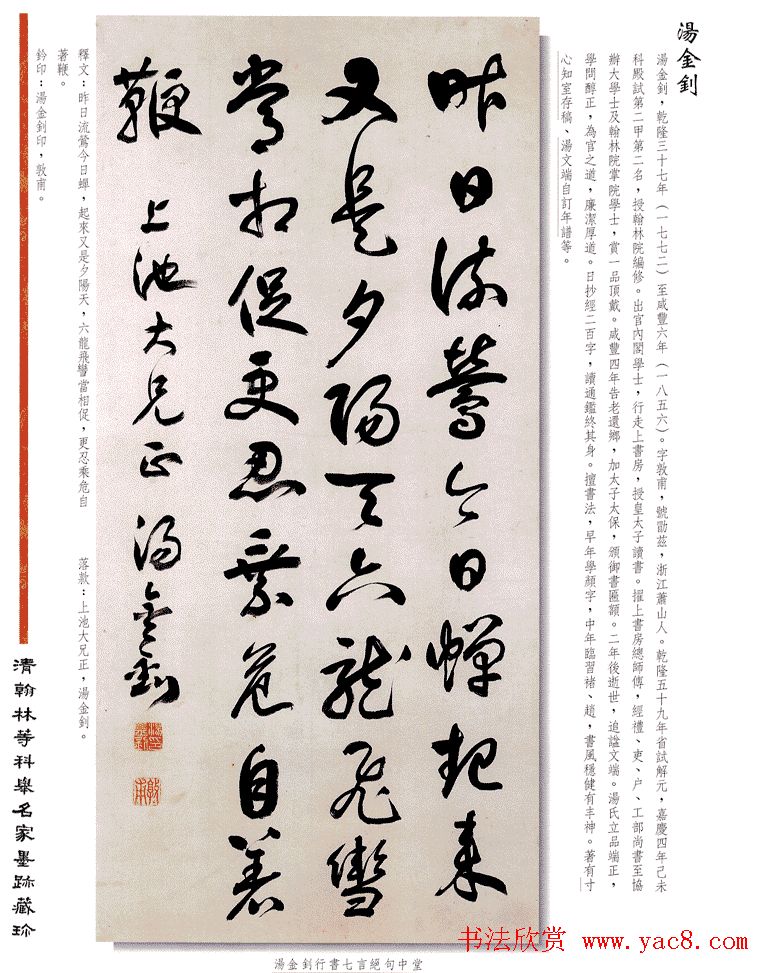 湯金釗
湯金釗，乾隆三十七年（一七七二）至咸豐六年（一八五六）。字敦甫，號勖茲，浙江蕭山人。乾隆五十九年省試解元，嘉慶四年己未
科殿試第二甲第二名，授翰林院編修。出官內閣學士，行走上書房，授皇太子讀書。擢上書房總師傅，經禮、吏、户、工部尚書至協
辦大學士及翰林院掌院學士，賞一品頂戴。咸豐四年告老還鄉，加太子太保，頒御書匾額。二年後逝世，追謚文端。湯氏立品端正，
學問醇正，為官之道，廉潔厚道。日抄經二百字，讀通鑑終其身。擅書法，早年學顏字，中年臨習褚、趙，書風穩健有丰神。著有寸
心知室存稿、湯文端自訂年譜等。
昨日流鶯今日蟬起來
又是夕陽天六龍飛轡
當相促更忍乘危自著
鞭 上池大兄正 湯金釗
湯金釗印
敦甫
釋文：昨日流鶯今日蟬，起來又是夕陽天，六龍飛轡當相促，更忍乘危自
著鞭。
落款：上池大兄正，湯金釗。
鈐印：湯金釗印，敦甫。
清翰林等科舉名家墨跡藏珍
湯金釗行書七言絕句中堂
书法欣赏 www.yac8.com